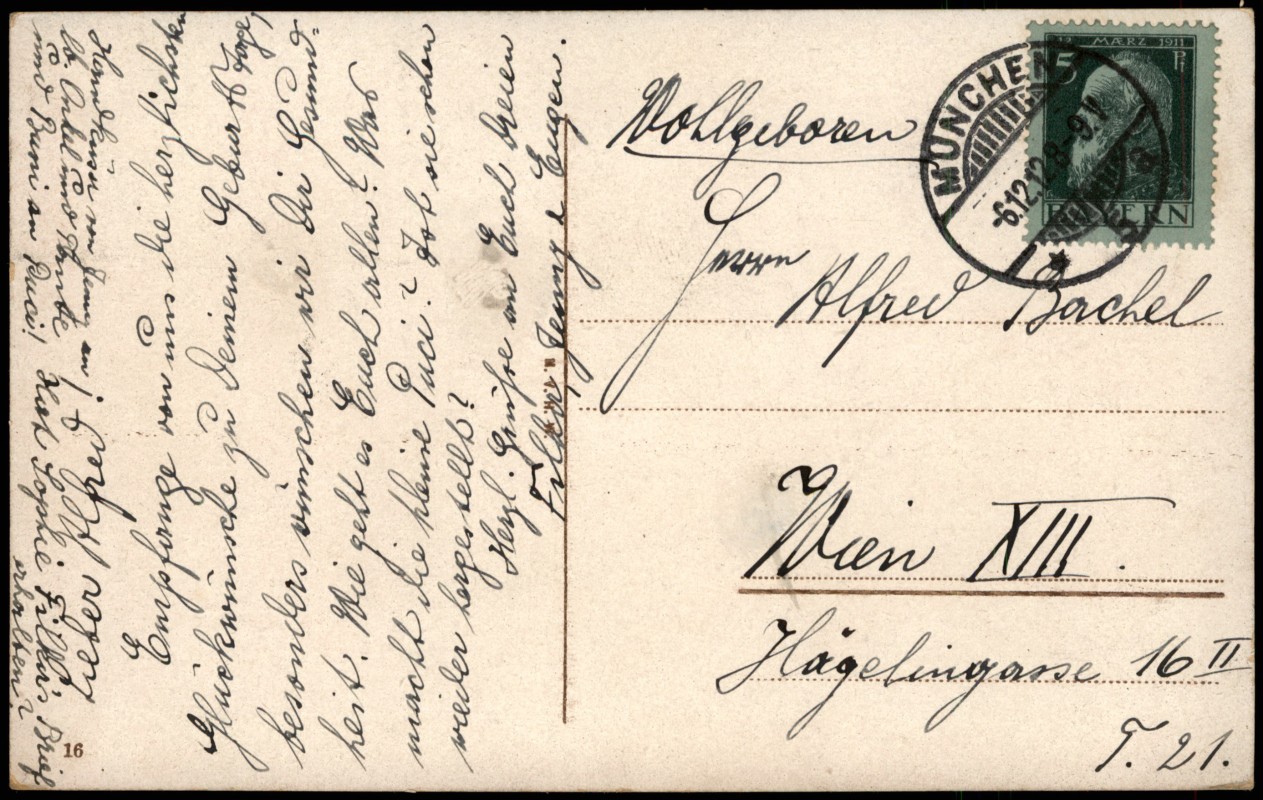 Lieber Alfred!
Empfange von uns die herzlichsten
Glückwünsche zu Deinem Geburtstage,
besonders wünschen wir Dir Gesund-
heit. Wie geht es Euch allen? Was
macht die kleine Puci? Ist sie schon
wieder hergestellt?
Herzl. Grüsse an Euch
Jenny & Eugen.
von Jenny an
lb. Onkel und Tante
und an Puci! Hat Sophie Brief
erhalten?
16
Wohlgeboren
Herrn
Alfred Bachel
Wien XIII.
Hägelingasse 16 II
T. 21.
12 MÆRZ 1911
5 Pf
BAYERN
MÜNCHEN
-6.12.12.8-9.V.